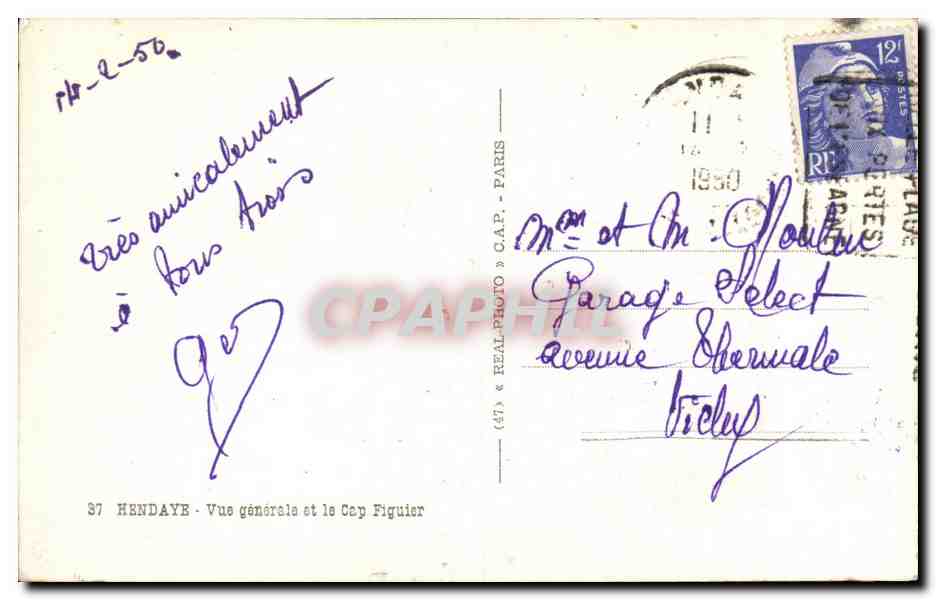 14-2-50.
très amicalement
à tous trois
Mme et M. Moulin
Garage Select
avenue Thermale
Vichy
37 HENDAYE - Vue générale et le Cap Figuier
(47) « REAL-PHOTO » C.A.P. - PARIS
CPAPHIL
12F
POSTES
RF
11
1950
PLAGE